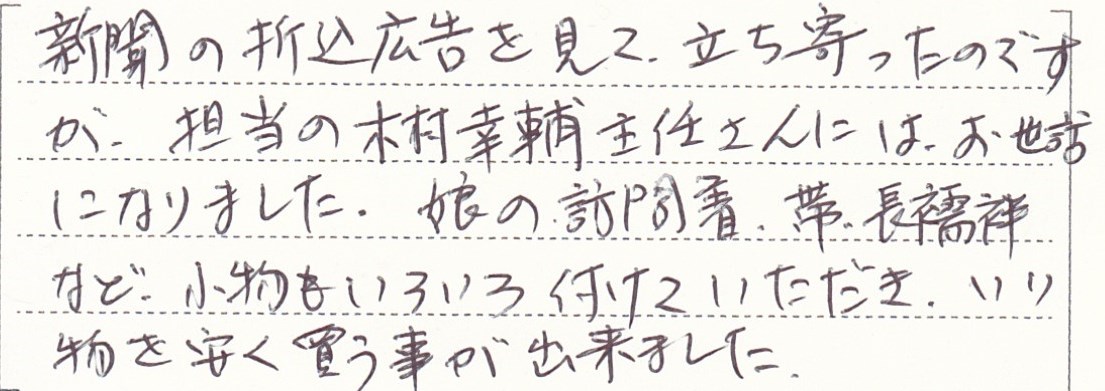 新聞の折込広告を見て、立ち寄ったのです
が、担当の木村幸輔主任さんには、お世話
になりました。娘の訪問着、帯、長襦袢
など、小物もいろいろ付けていただき、いい
物を安く買う事が出来ました。